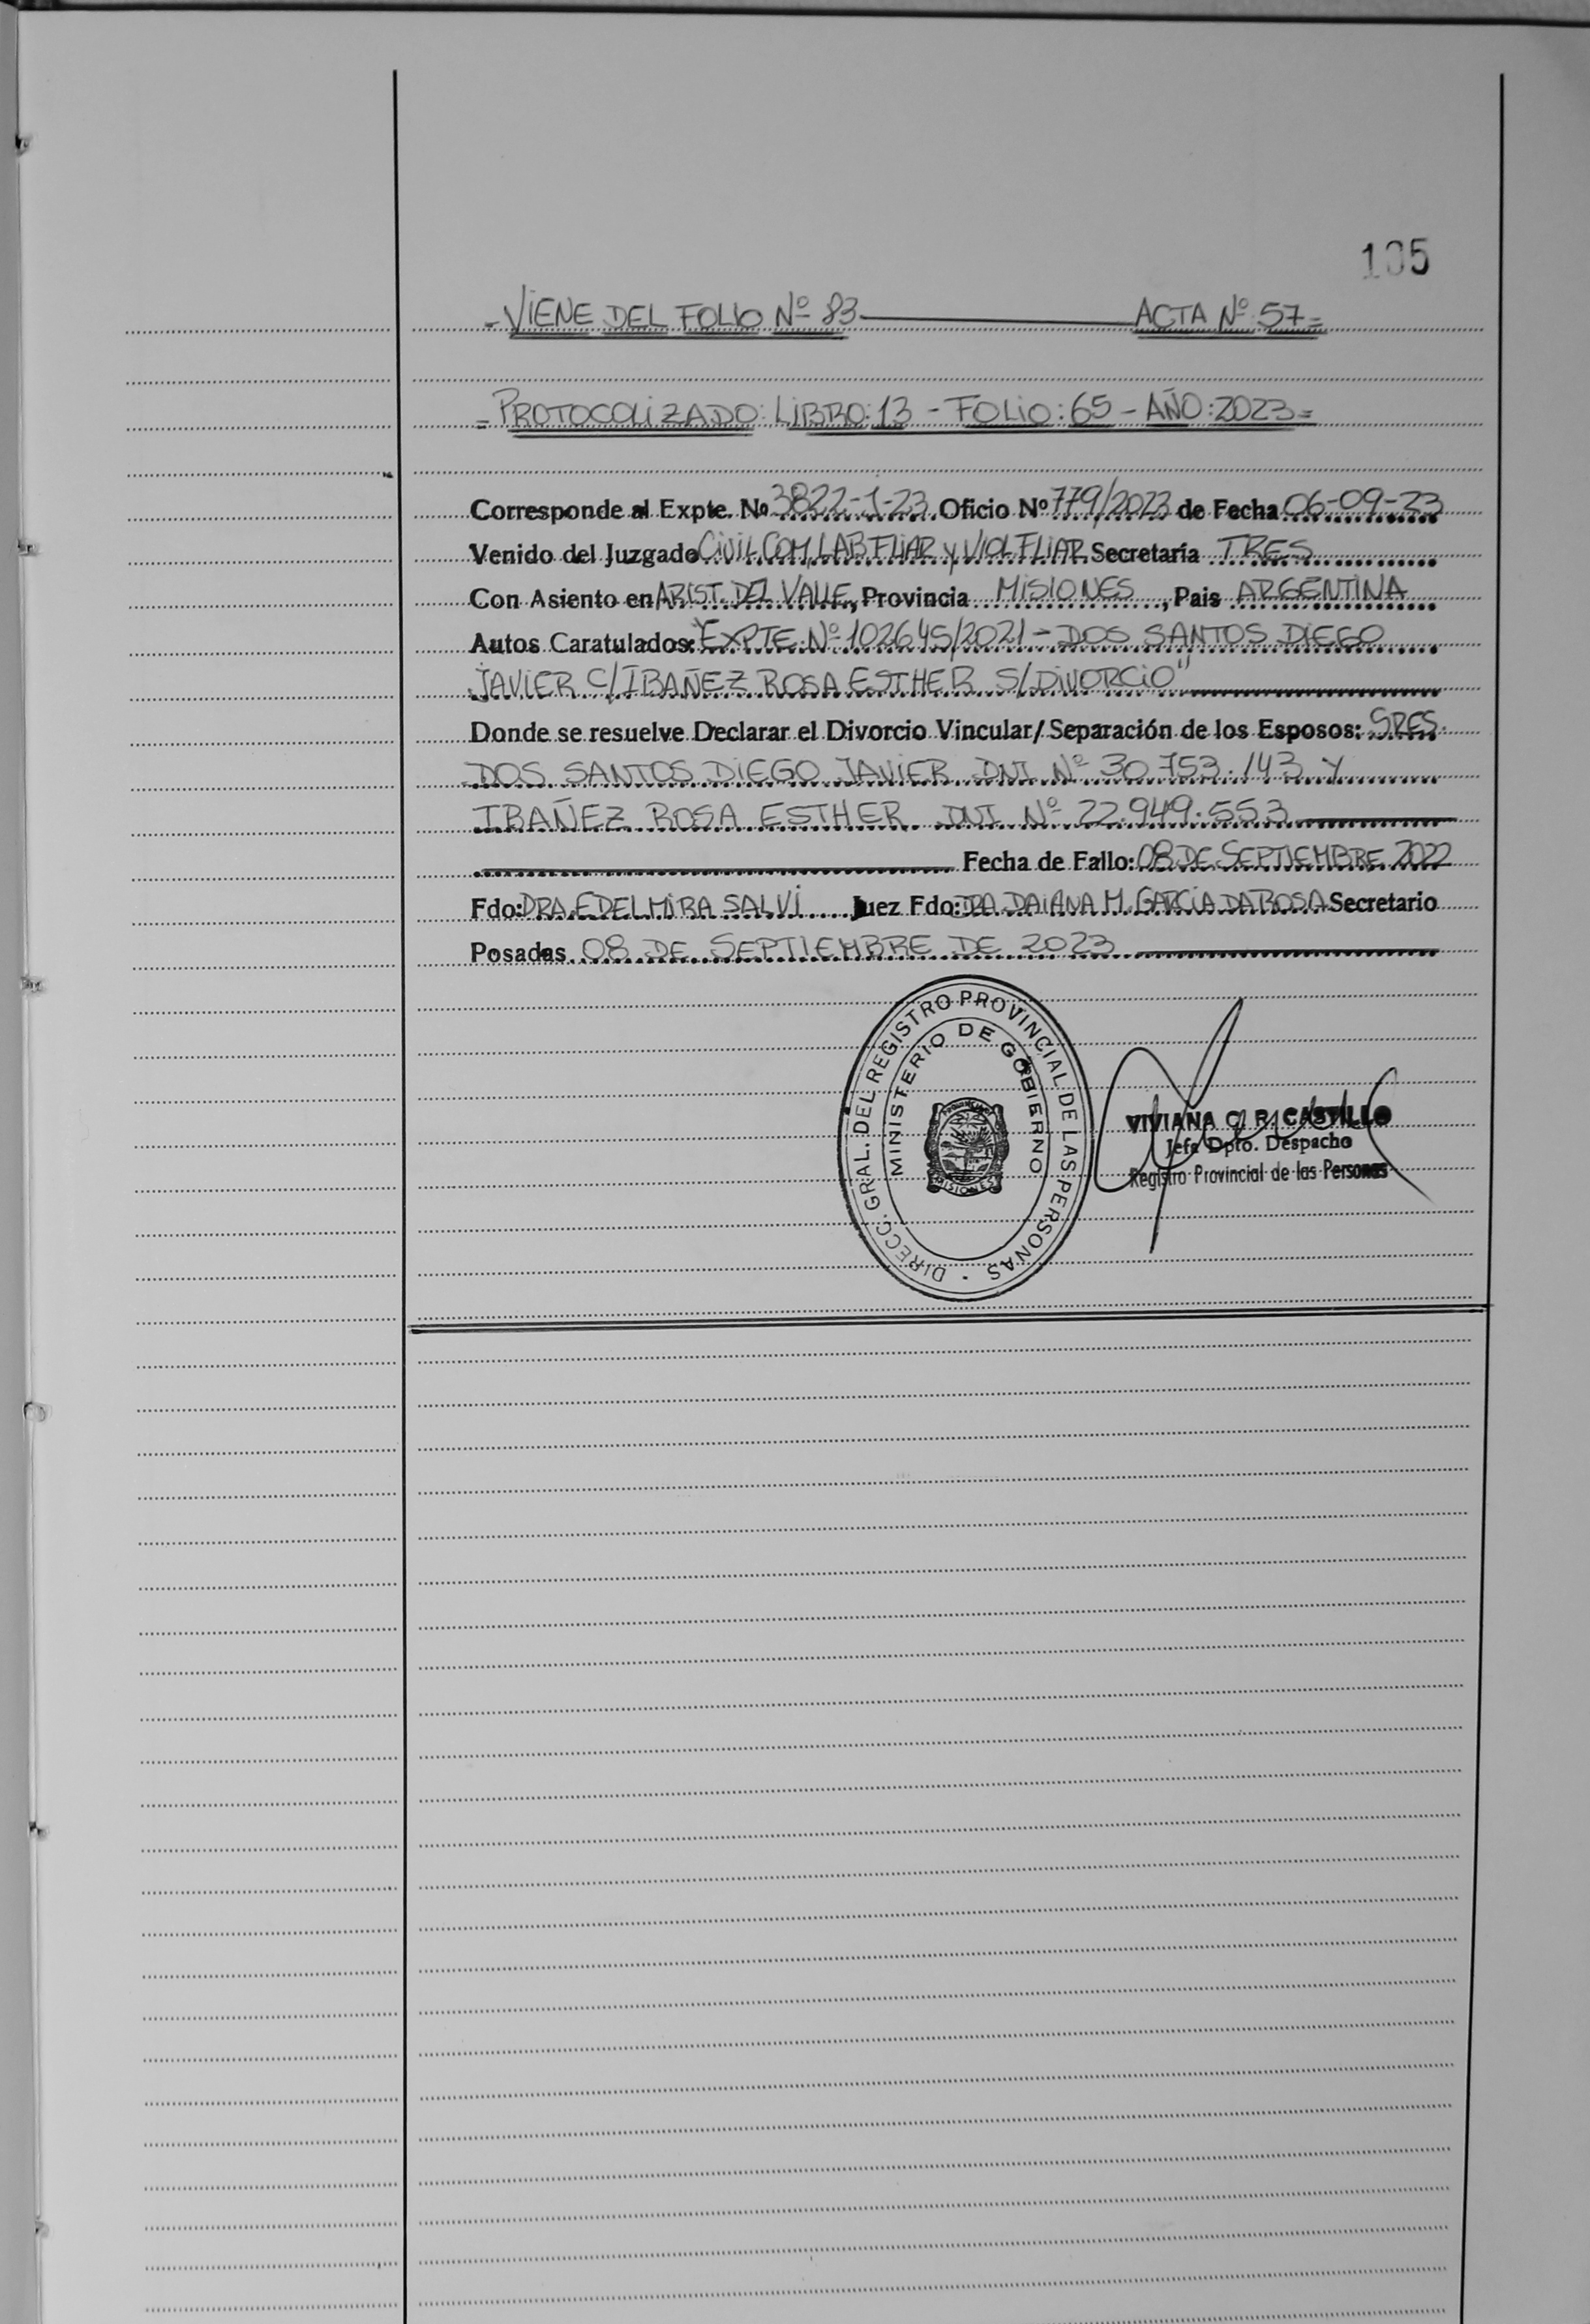 105
=VIENE DEL FOLIO Nº 83 ACTA Nº: 57=
=PROTOCOLIZADO: LIBRO: 13 - FOLIO: 65 - AÑO: 2023=
Corresponde al Expte. Nº 3822-1-23 Oficio Nº 779/2023 de Fecha 06-09-23
Venido del Juzgado CIVIL, COM, LAB FLIAR y VIOL FLIAR Secretaría TRES
Con Asiento en ARIST. DEL VALLE, Provincia MISIONES, Pais ARGENTINA
Autos Caratulados: "EXPTE Nº 102645/2021 - DOS SANTOS DIEGO
JAVIER C/ IBAÑEZ ROSA ESTHER S/DIVORCIO"
Donde se resuelve Declarar el Divorcio Vincular/ Separación de los Esposos: SRES.
DOS SANTOS DIEGO JAVIER DNI Nº 30.753.143 Y
IBAÑEZ ROSA ESTHER DNI Nº 22.949.553
Fecha de Fallo: 08 DE SEPTIEMBRE 2022
Fdo: DRA. EDELMIRA SALVI Juez Fdo: DRA DAIANA M. GARCIA DA ROSA Secretario
Posadas 08 DE SEPTIEMBRE DE 2023
DIRECC. GRAL. DEL REGISTRO PROVINCIAL DE LAS PERSONAS
MINISTERIO DE GOBIERNO
MISIONES
VIVIANA C. R. CASTILLO
Jefa Dpto. Despacho
Registro Provincial de las Personas